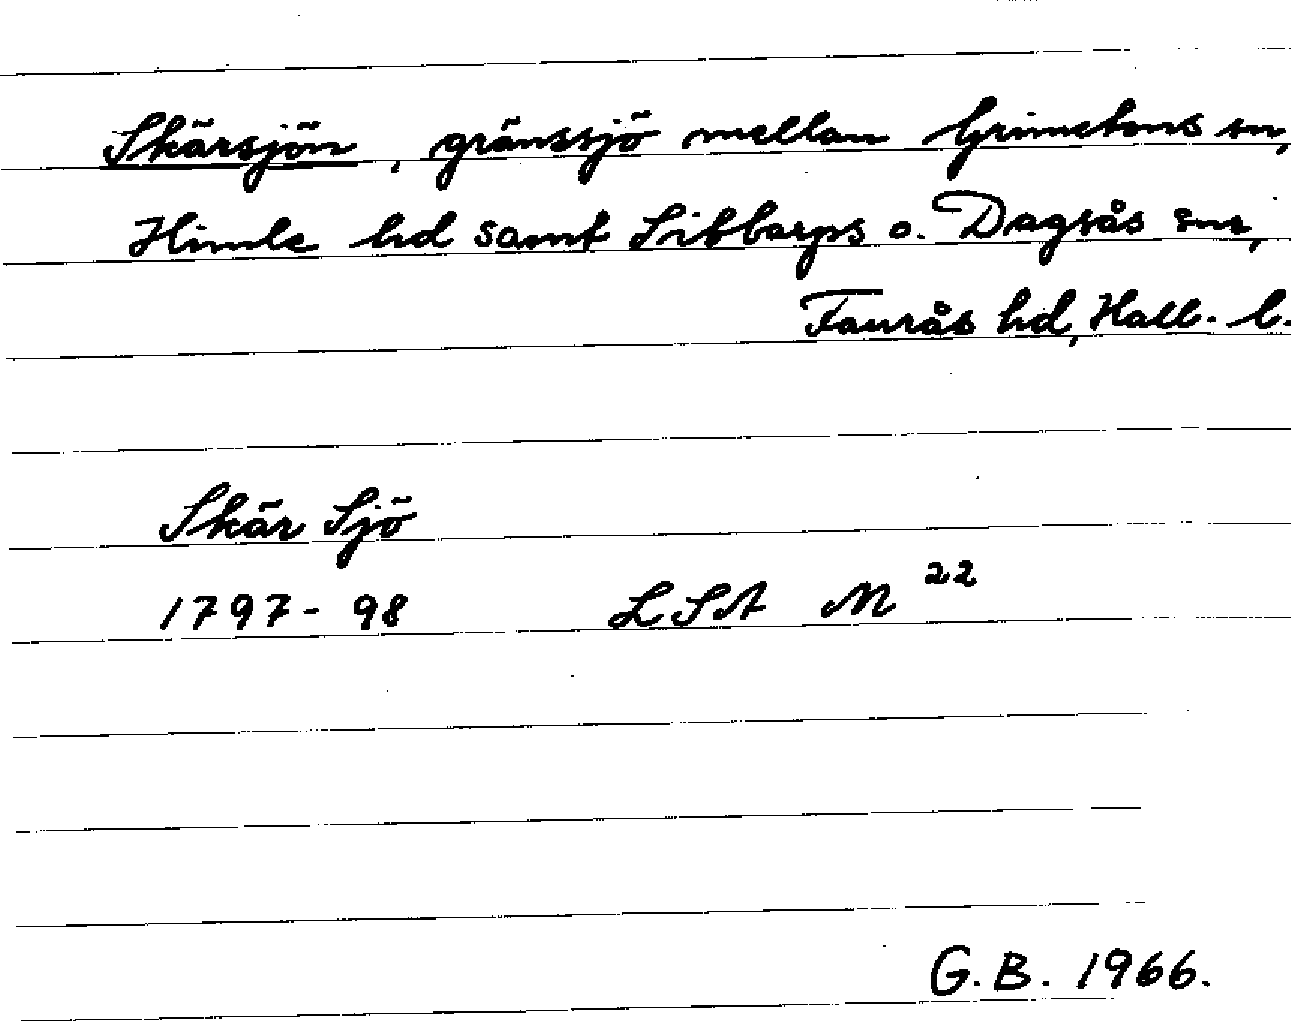 Skärsjön, gränssjö mellan Grimetons sn,
Himle hd samt Sibbarps o. Dagsås snr,
Faurås hd, Hall. l.
Skär Sjö
1797-98 LSA M 22
G.B. 1966.